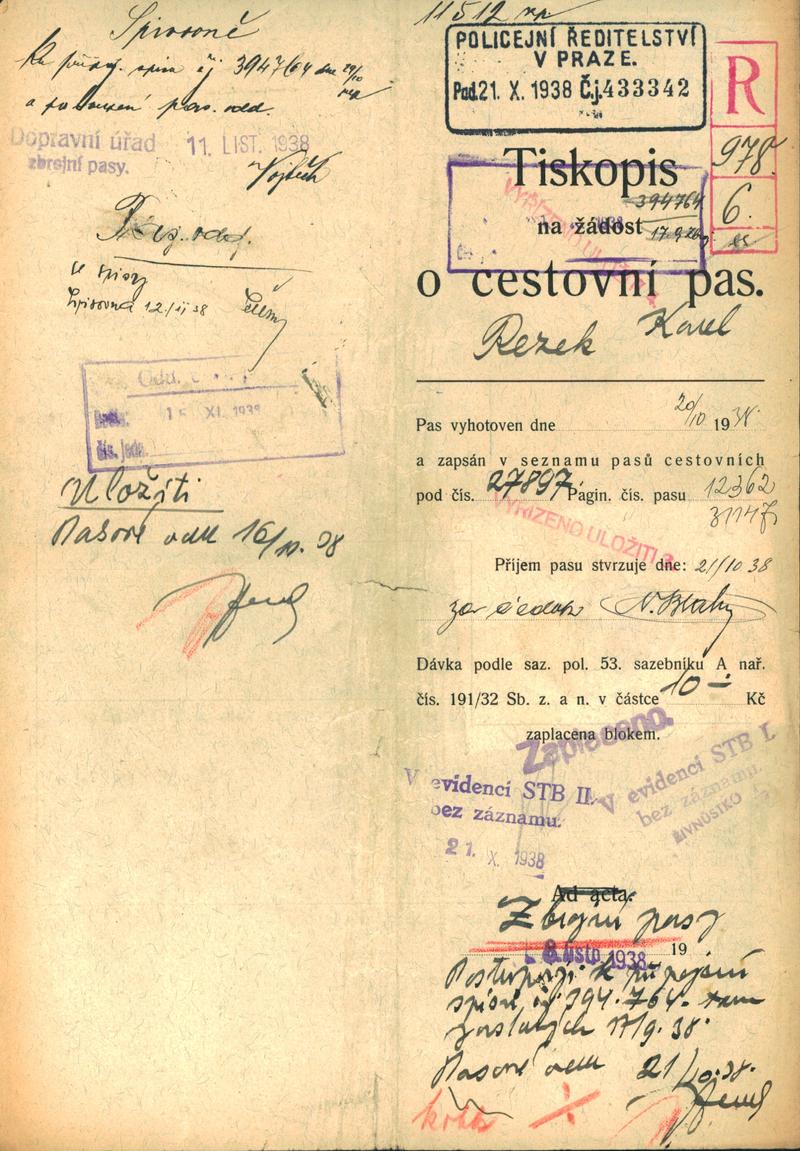 Spisovně
394764
Dopravní úřad 11. LIST. 1938
zbrojní pasy.
Vojtěch
se spisy
Spisovna 12/11 38
15 XI. 1938
čís. jedn.
Uložiti
Pasové odd. 16/11. 38
11512
POLICEJNÍ ŘEDITELSTVÍ
V PRAZE.
Pod. 21. X. 1938 Č.j. 433342
R
978.
6.
Tiskopis
394764
na žádost 17.9
o cestovní pas.
Rezek Karel
VYŘÍZENO ULOŽITI
Pas vyhotoven dne 20/10 1938
a zapsán v seznamu pasů cestovních
pod čís. 27897 Págin. čís. pasu 12362
31147
VYŘÍZENO ULOŽITI
Příjem pasu stvrzuje dne: 21/10 38
za
Dávka podle saz. pol. 53. sazebníku A nař.
čís. 191/32 Sb. z. a n. v částce 10 — Kč
zaplacena blokem.
Zaplaceno.
V evidenci STB II.
bez záznamu.
21. X. 1938
V evidenci STB I.
bez záznamu.
ŽIVNŮSTKO
Ad acta.
Zbrojní pasy
8. listo. 1938 19
Postupuji k připojení
spisů čj. 394.764.
17/9. 38.
Pasové odd. 21/10. 38.